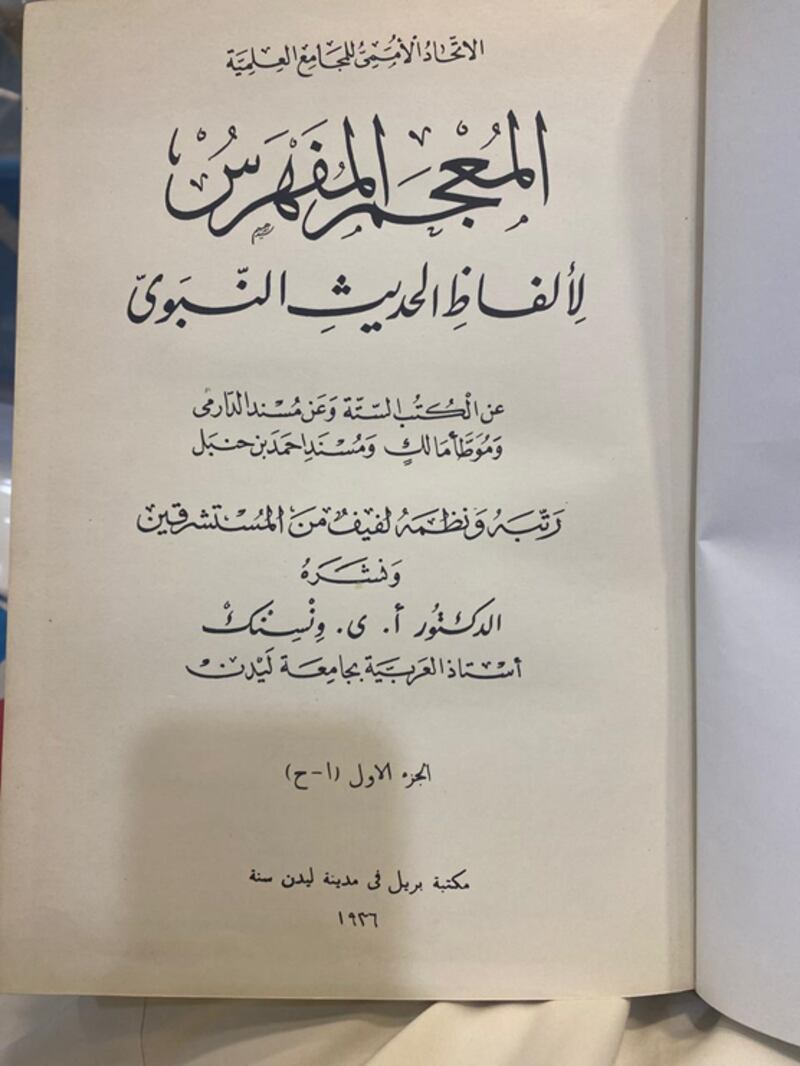 الاتّحادُ الأُمَمِىُّ للمجامع العِلمِيَّة
المُعْجَمُ المُفَهْرَسُ
لِأَلفَاظِ الحَديثِ النَّبَوِىّ
عن الْكتُبِ السّتَّة وَعَن مُسْنَد الدّارمى
وَمُوَطَّأ مَالكٍ وَمُسْنَدِ احمَدَ بن حنبَل
رَتّبَهُ وَنظمَهُ لفيفٌ مِنَ المُسْتشرقين
وَنشَرَهُ
الدكتُور أ. ى. وِنْسِنْكْ
أسْتاذ العَرَبيَّة بجَامِعَة لَيْدنْ
الجزء الاول (ا-ح)
مكتبة بريل فى مدينة ليدن سنة
١٩٣٦